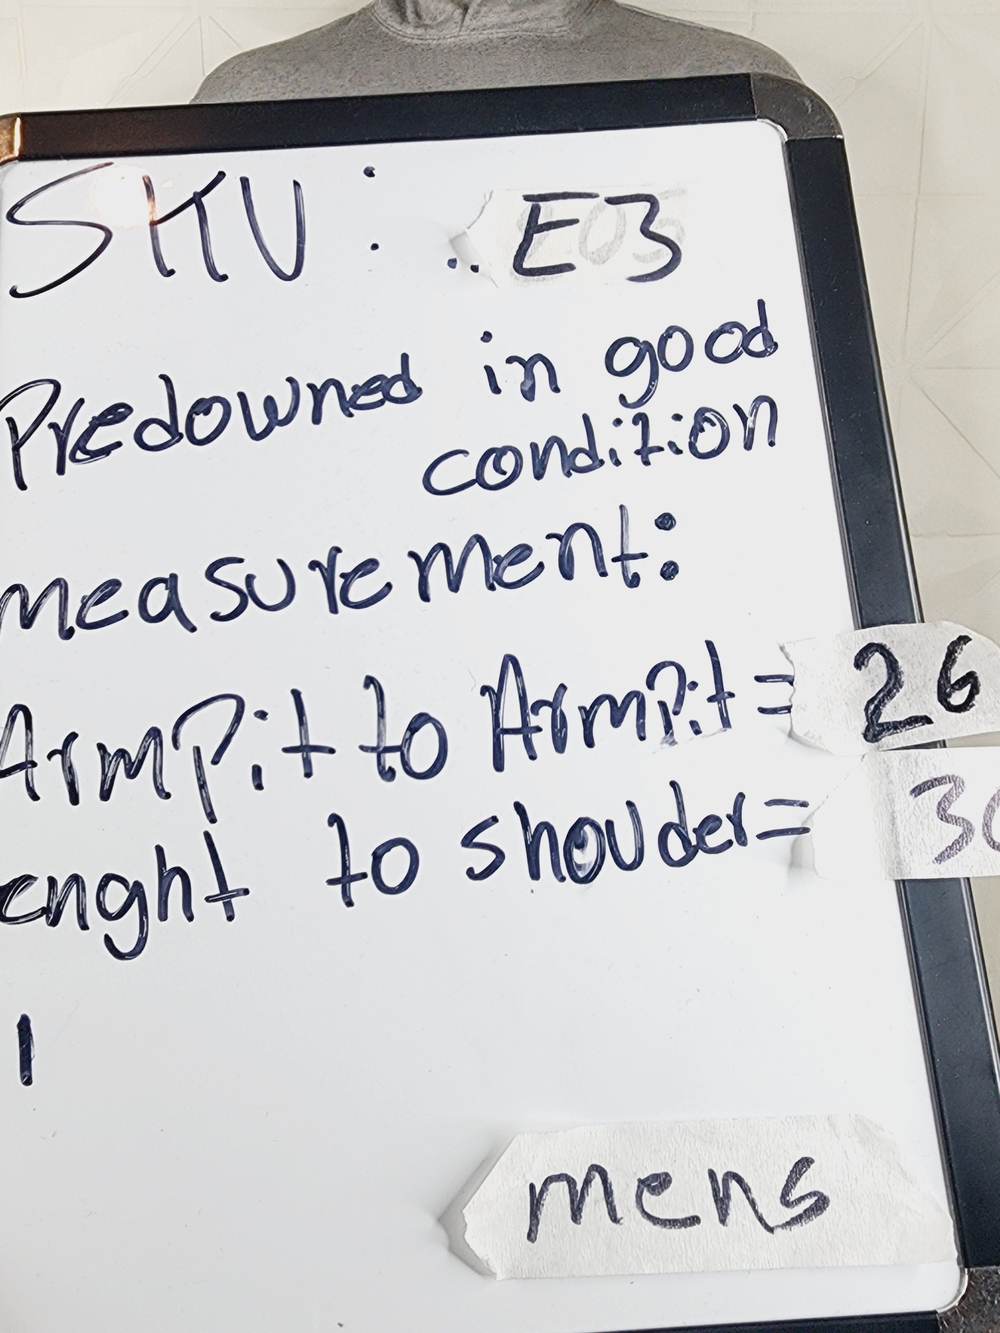 SKU : E03
Predowned in good
condition
measurement:
ArmPit to ArmPit = 26
enght to shouder =
mens